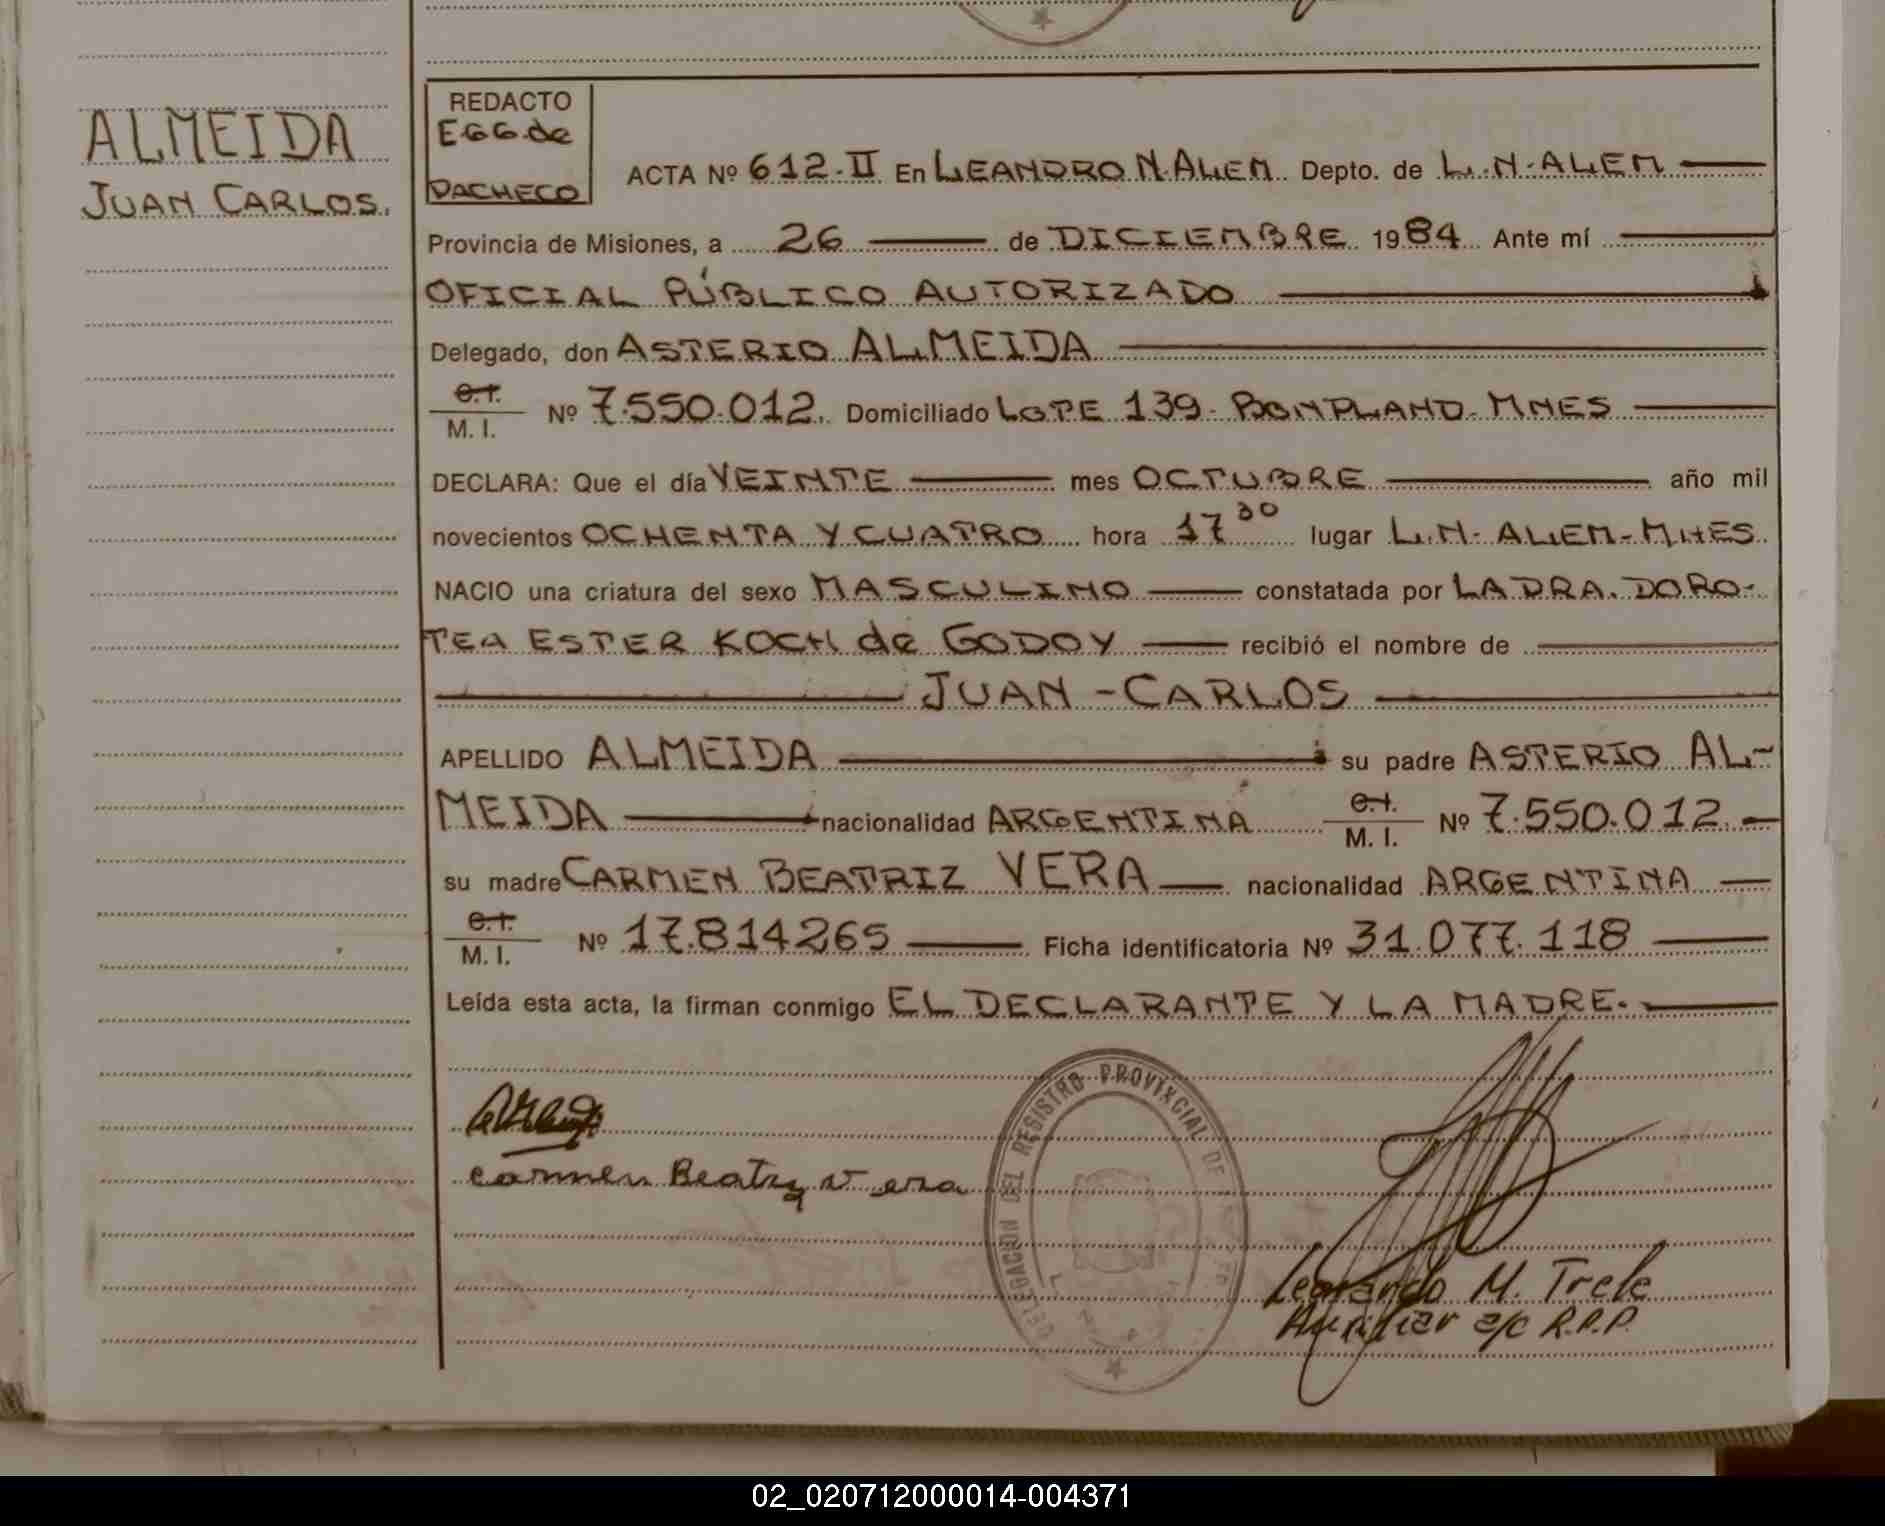 ALMEIDA
JUAN CARLOS.
REDACTO
EGG.de
PACHECO
ACTA Nº 612-II En LEANDRO N.ALEM Depto. de L.N-ALEM
Provincia de Misiones, a 26 de DICIEMBRE 1984 Ante mí
OFICIAL PÚBLICO AUTORIZADO
Delegado, don ASTERIO ALMEIDA
C.I.
M. I. Nº 7.550.012. Domiciliado LOTE 139-BONPLAND-MNES
DECLARA: Que el día VEINTE mes OCTUBRE año mil
novecientos OCHENTA Y CUATRO hora 17 30 lugar L.N-ALEM-MNES
NACIO una criatura del sexo MASCULINO constatada por LA DRA. DORO-
TEA ESTER KOCH de GODOY recibió el nombre de
JUAN-CARLOS
APELLIDO ALMEIDA su padre ASTERIO AL-
MEIDA nacionalidad ARGENTINA C.I.
M. I. Nº 7.550.012.
su madre CARMEN BEATRIZ VERA nacionalidad ARGENTINA
C.I.
M. I. Nº 17.814265 Ficha identificatoria Nº 31.077.118
Leída esta acta, la firman conmigo EL DECLARANTE Y LA MADRE.
Carmen Beatriz Vera
DELEGACION DEL REGISTRO PROVINCIAL DE
Leonardo M. Trele
Auxiliar a/c R.P.P.
02_020712000014-004371